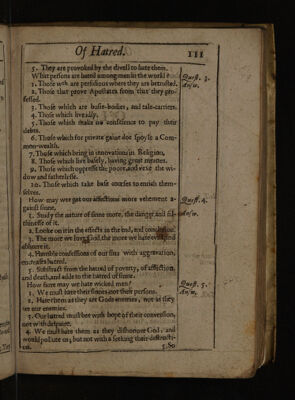 Of Hatred. 111
5. They are provoked by the divell to hate them.
What persons are hated among men in the world?
Quest. 3.
1. Those that are perfidious where they are betrusted.
Answ.
2. Those that prove Apostates from that they professed.
3. Those which are busie-bodies, and tale-carriers.
4. Those which live idly.
5. Those which make no conscience to pay their
debts.
6. Those which for private gaine doe spoyle a Com-
mon-wealth.
7. Those which bring in innovations in Religion.
8. Those which live basely, having great meanes.
9. Those which oppresse the poore, and vexe the wi-
dow and fatherlesse.
10. Those which take base courses to enrich them-
selves.
How may wee get our affections more vehement a-
Quest. 4.
gainst sinne.
1. Study the nature of sinne more, the danger and fil-
Answ.
thinesse of it.
2. Looke on it in the effects in the end, and
3. The more we love God, the more we hate evill and
abhorre it.
4. Humble confessions of our sins with aggravation,
encreases hatred.
5. Substract from the hatred of poverty, of affliction,
and death, and adde to the hatred of sinne.
How farre may we hate wicked men?
Quest. 5.
1. We must hate their sinnes not their persons.
Answ.
2. Hate them as they are Gods enemies, not as they
are our enemies.
3. Our hatred must bee with hope of their conversion,
not with despaire.
4. We must hate them as they dishonour God, and
would pollute us; but not with a seeking their destructi-
on.
5. So